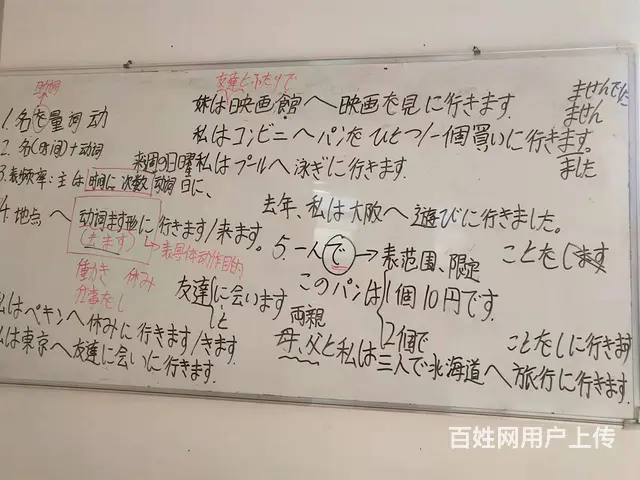 友達とふたりで
1. 名を量词 动
妹は映画館へ映画を見に行きます
ませんでした
ません
ました
2. 名(时间)+动词
私はコンビニへパンをひとつ/一個買いに行きます。
3. 表频率:主は 时间に 次数 动词
来週の日曜日に、
私はプールへ泳ぎに行きます
4. 地点へ 动词ます形に 行きます/来ます。
(去ます)
→表具体动作目的
働き 休み
仕事をし
去年、私は大阪へ遊びに行きました。
5. 一人で→表范围、限定
ことをします
友達に会います
と
このパンは1個10円です
2個で
私はペキンへ休みに行きます/きます
私は東京へ友達に会いに行きます.
両親
母、父と私は三人で北海道へ旅行に行きます.
ことをしに行きます
百姓网用户上传